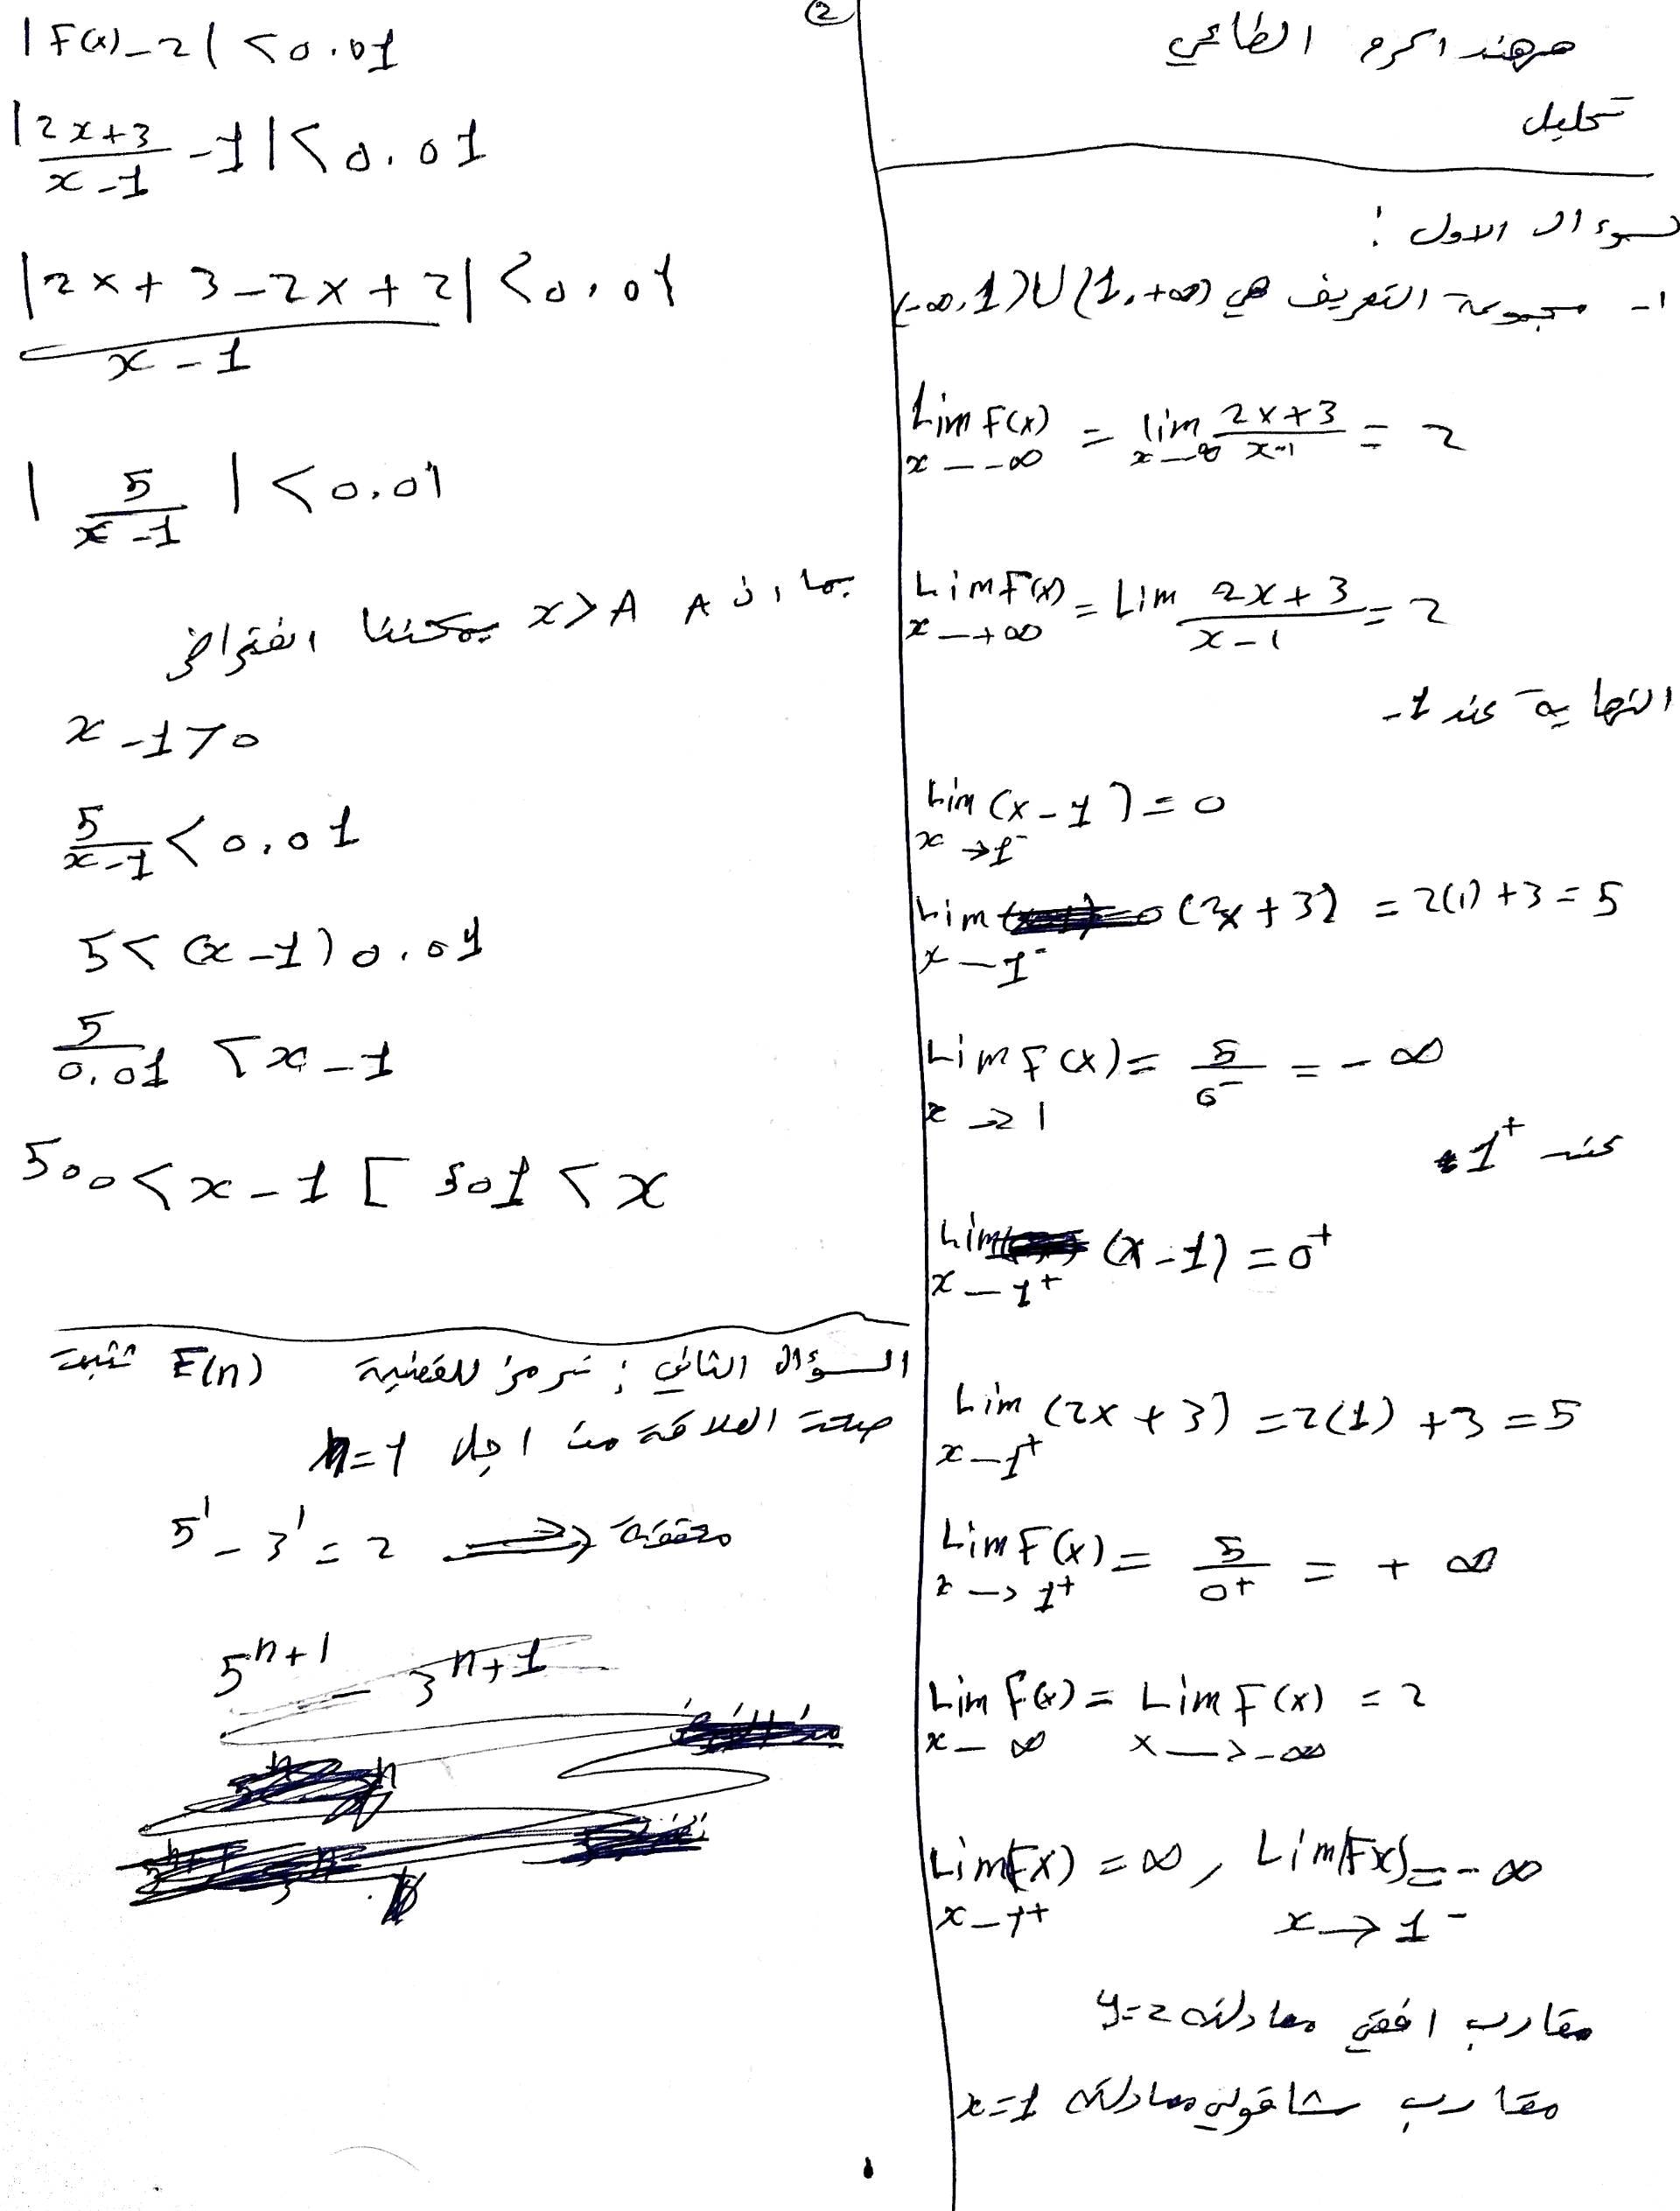 مهند اكرم الطاعي
تحليل
لسوءال الاول :
1- مجموعة التعريف هي (-∞,1)U(1,+∞)
Lim F(x) = lim 2x+3 / x-1 = 2
x → -∞ x → -∞
Lim F(x) = Lim 2x+3 / x-1 = 2
x → +∞
النهاية عند 1-
Lim (x-1) = 0
x → 1⁻
Lim (2x+3) = 2(1)+3 = 5
x → 1⁻
Lim F(x) = 5 / 0⁻ = -∞
x → 1
عند 1⁺
Lim (x-1) = 0⁺
x → 1⁺
Lim (2x+3) = 2(1)+3 = 5
x → 1⁺
Lim F(x) = 5 / 0⁺ = +∞
x → 1⁺
Lim F(x) = Lim F(x) = 2
x → ∞ x → -∞
Lim F(x) = ∞ , Lim F(x) = -∞
x → 1⁺ x → 1⁻
مقارب افقي معادلته y=2
مقارب شاقولي معادلته x=1
2
|F(x)-2| < 0.01
|2x+3 / x-1 - 1| < 0.01
|2x+3-2x+2| / x-1 < 0.01
|5 / x-1| < 0.01
بما ان x>A A يمكننا افتراض
x-1>0
5 / x-1 < 0.01
5 < (x-1) 0.01
5 / 0.01 < x-1
500 < x-1 [ 501 < x
السؤال الثاني : نرمز للقضية E(n) نثبت
صحة العلاقة من اجل n=1
5¹ - 3¹ = 2 ⟹ محققة
5ⁿ⁺¹ - 3ⁿ⁺¹